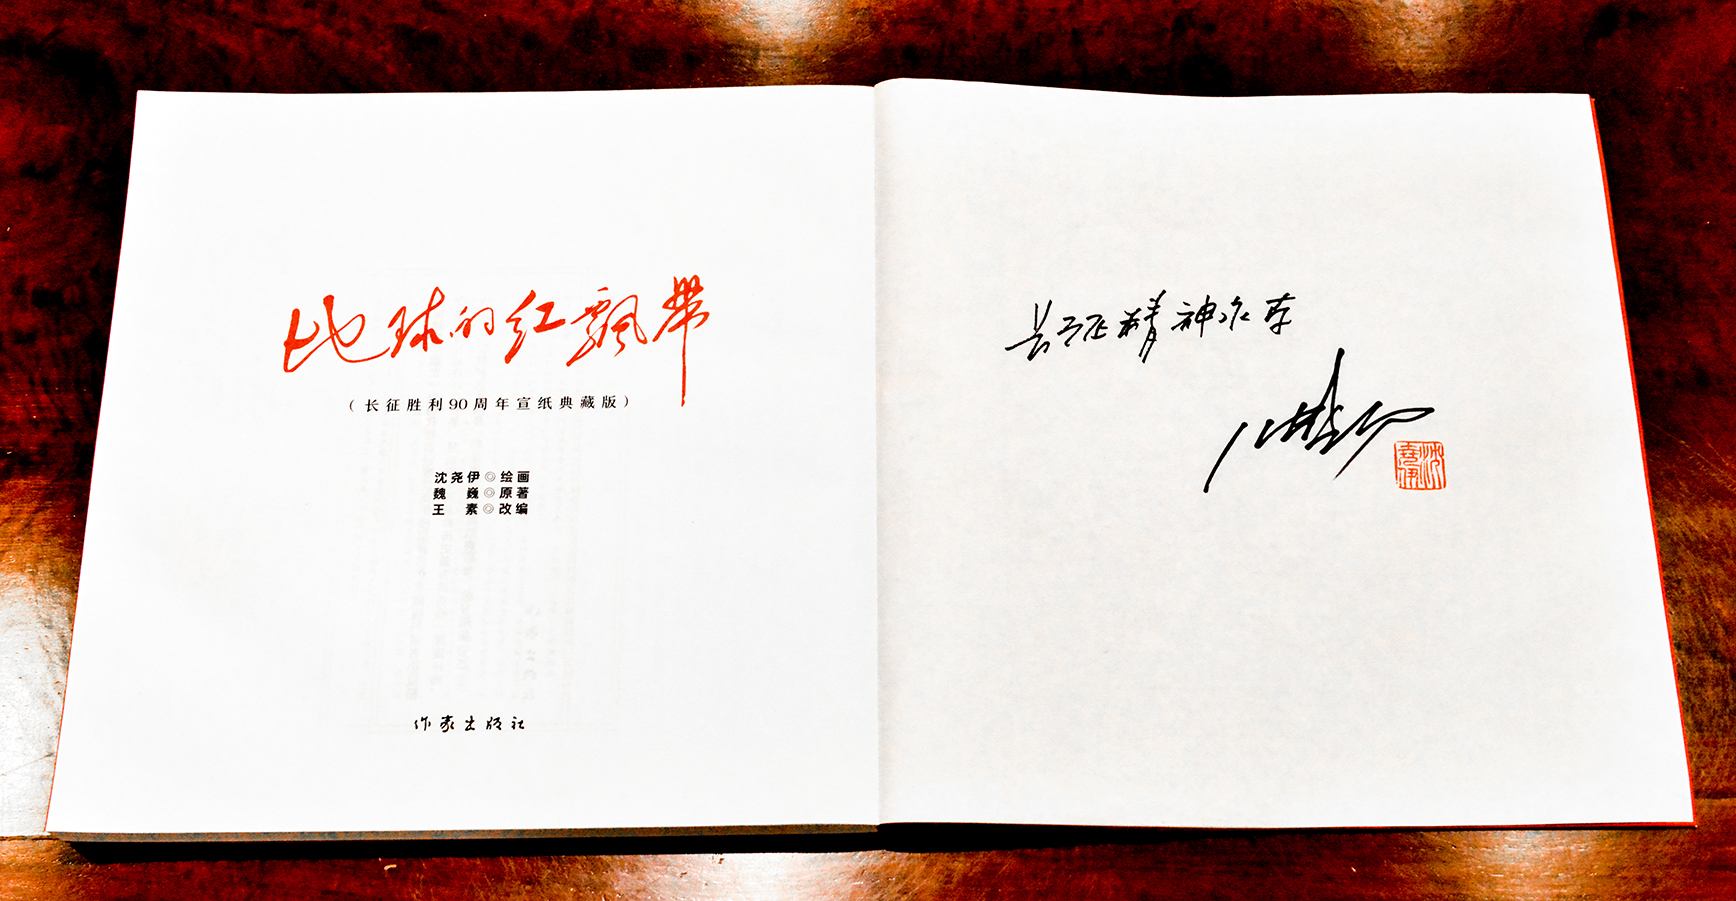 地球的红飘带
（长征胜利90周年宣纸典藏版）
沈尧伊◎绘画
魏 巍◎原著
王 素◎改编
作家出版社
长征精神永存
沈尧伊
沈尧伊